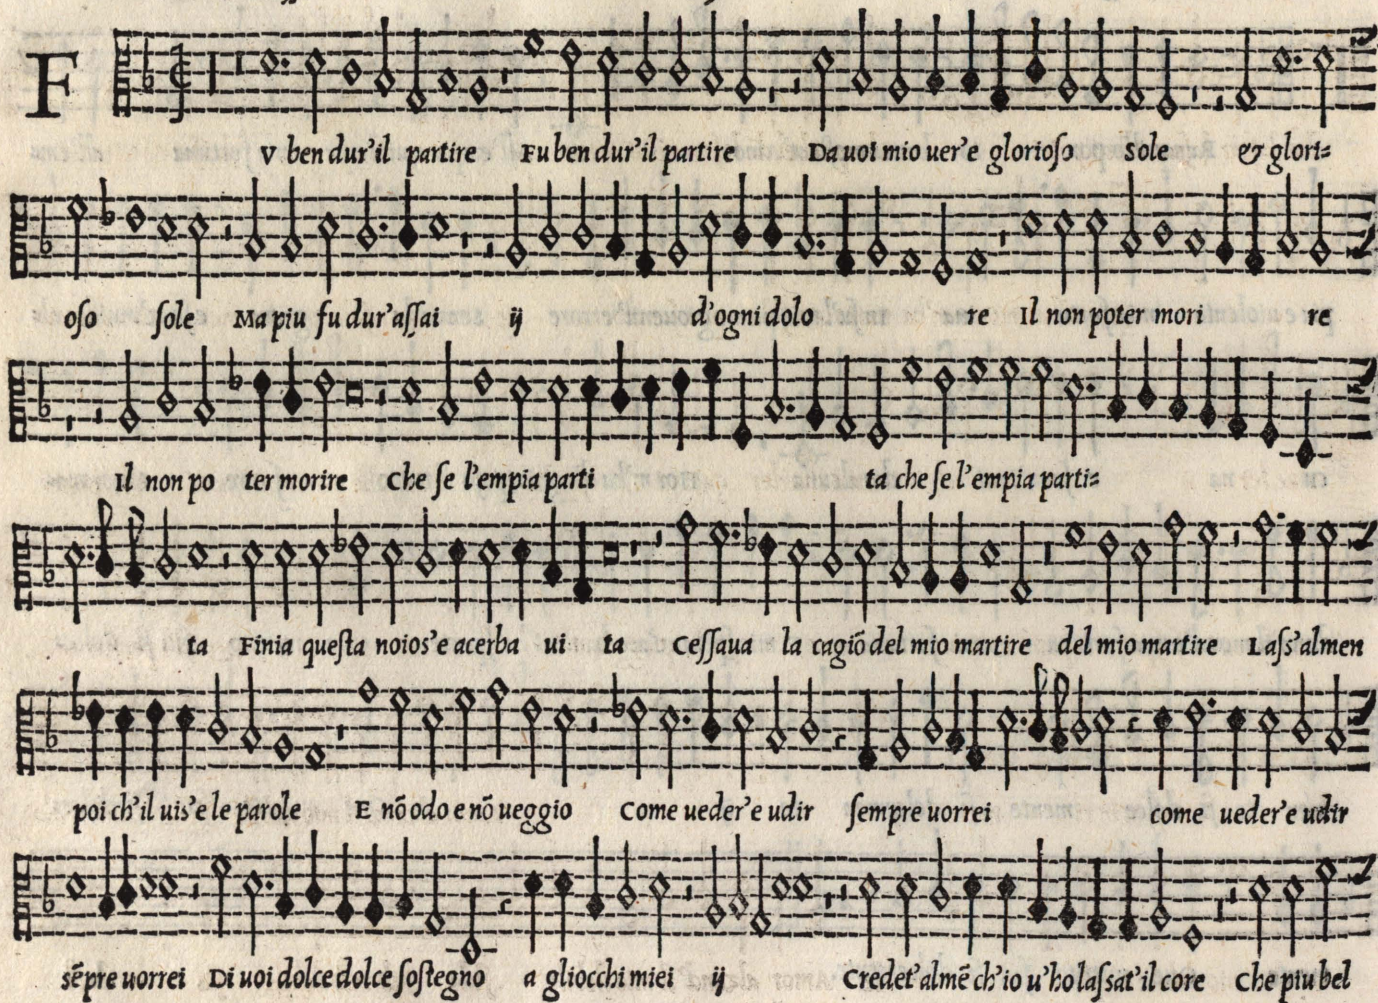 F
V ben dur'il partire Fu ben dur'il partire Da uoi mio uer'e glorioſo Sole & glori=
oſo ſole Ma piu fu dur'aſſai ij d'ogni dolo re Il non poter mori re
Il non po ter morire Che ſe l'empia parti ta che ſe l'empia parti=
ta Finia queſta noios'e acerba ui ta Ceſſaua la cagiõ del mio martire del mio martire Laſs'almen
poi ch'il uis'e le parole E nõ odo e nõ ueggio Come ueder'e udir ſempre uorrei come ueder'e udir
sẽpre uorrei Di uoi dolce dolce ſoſtegno a gliocchi miei ij Credet'almẽ ch'io u'ho laſſat'il core Che piu bel